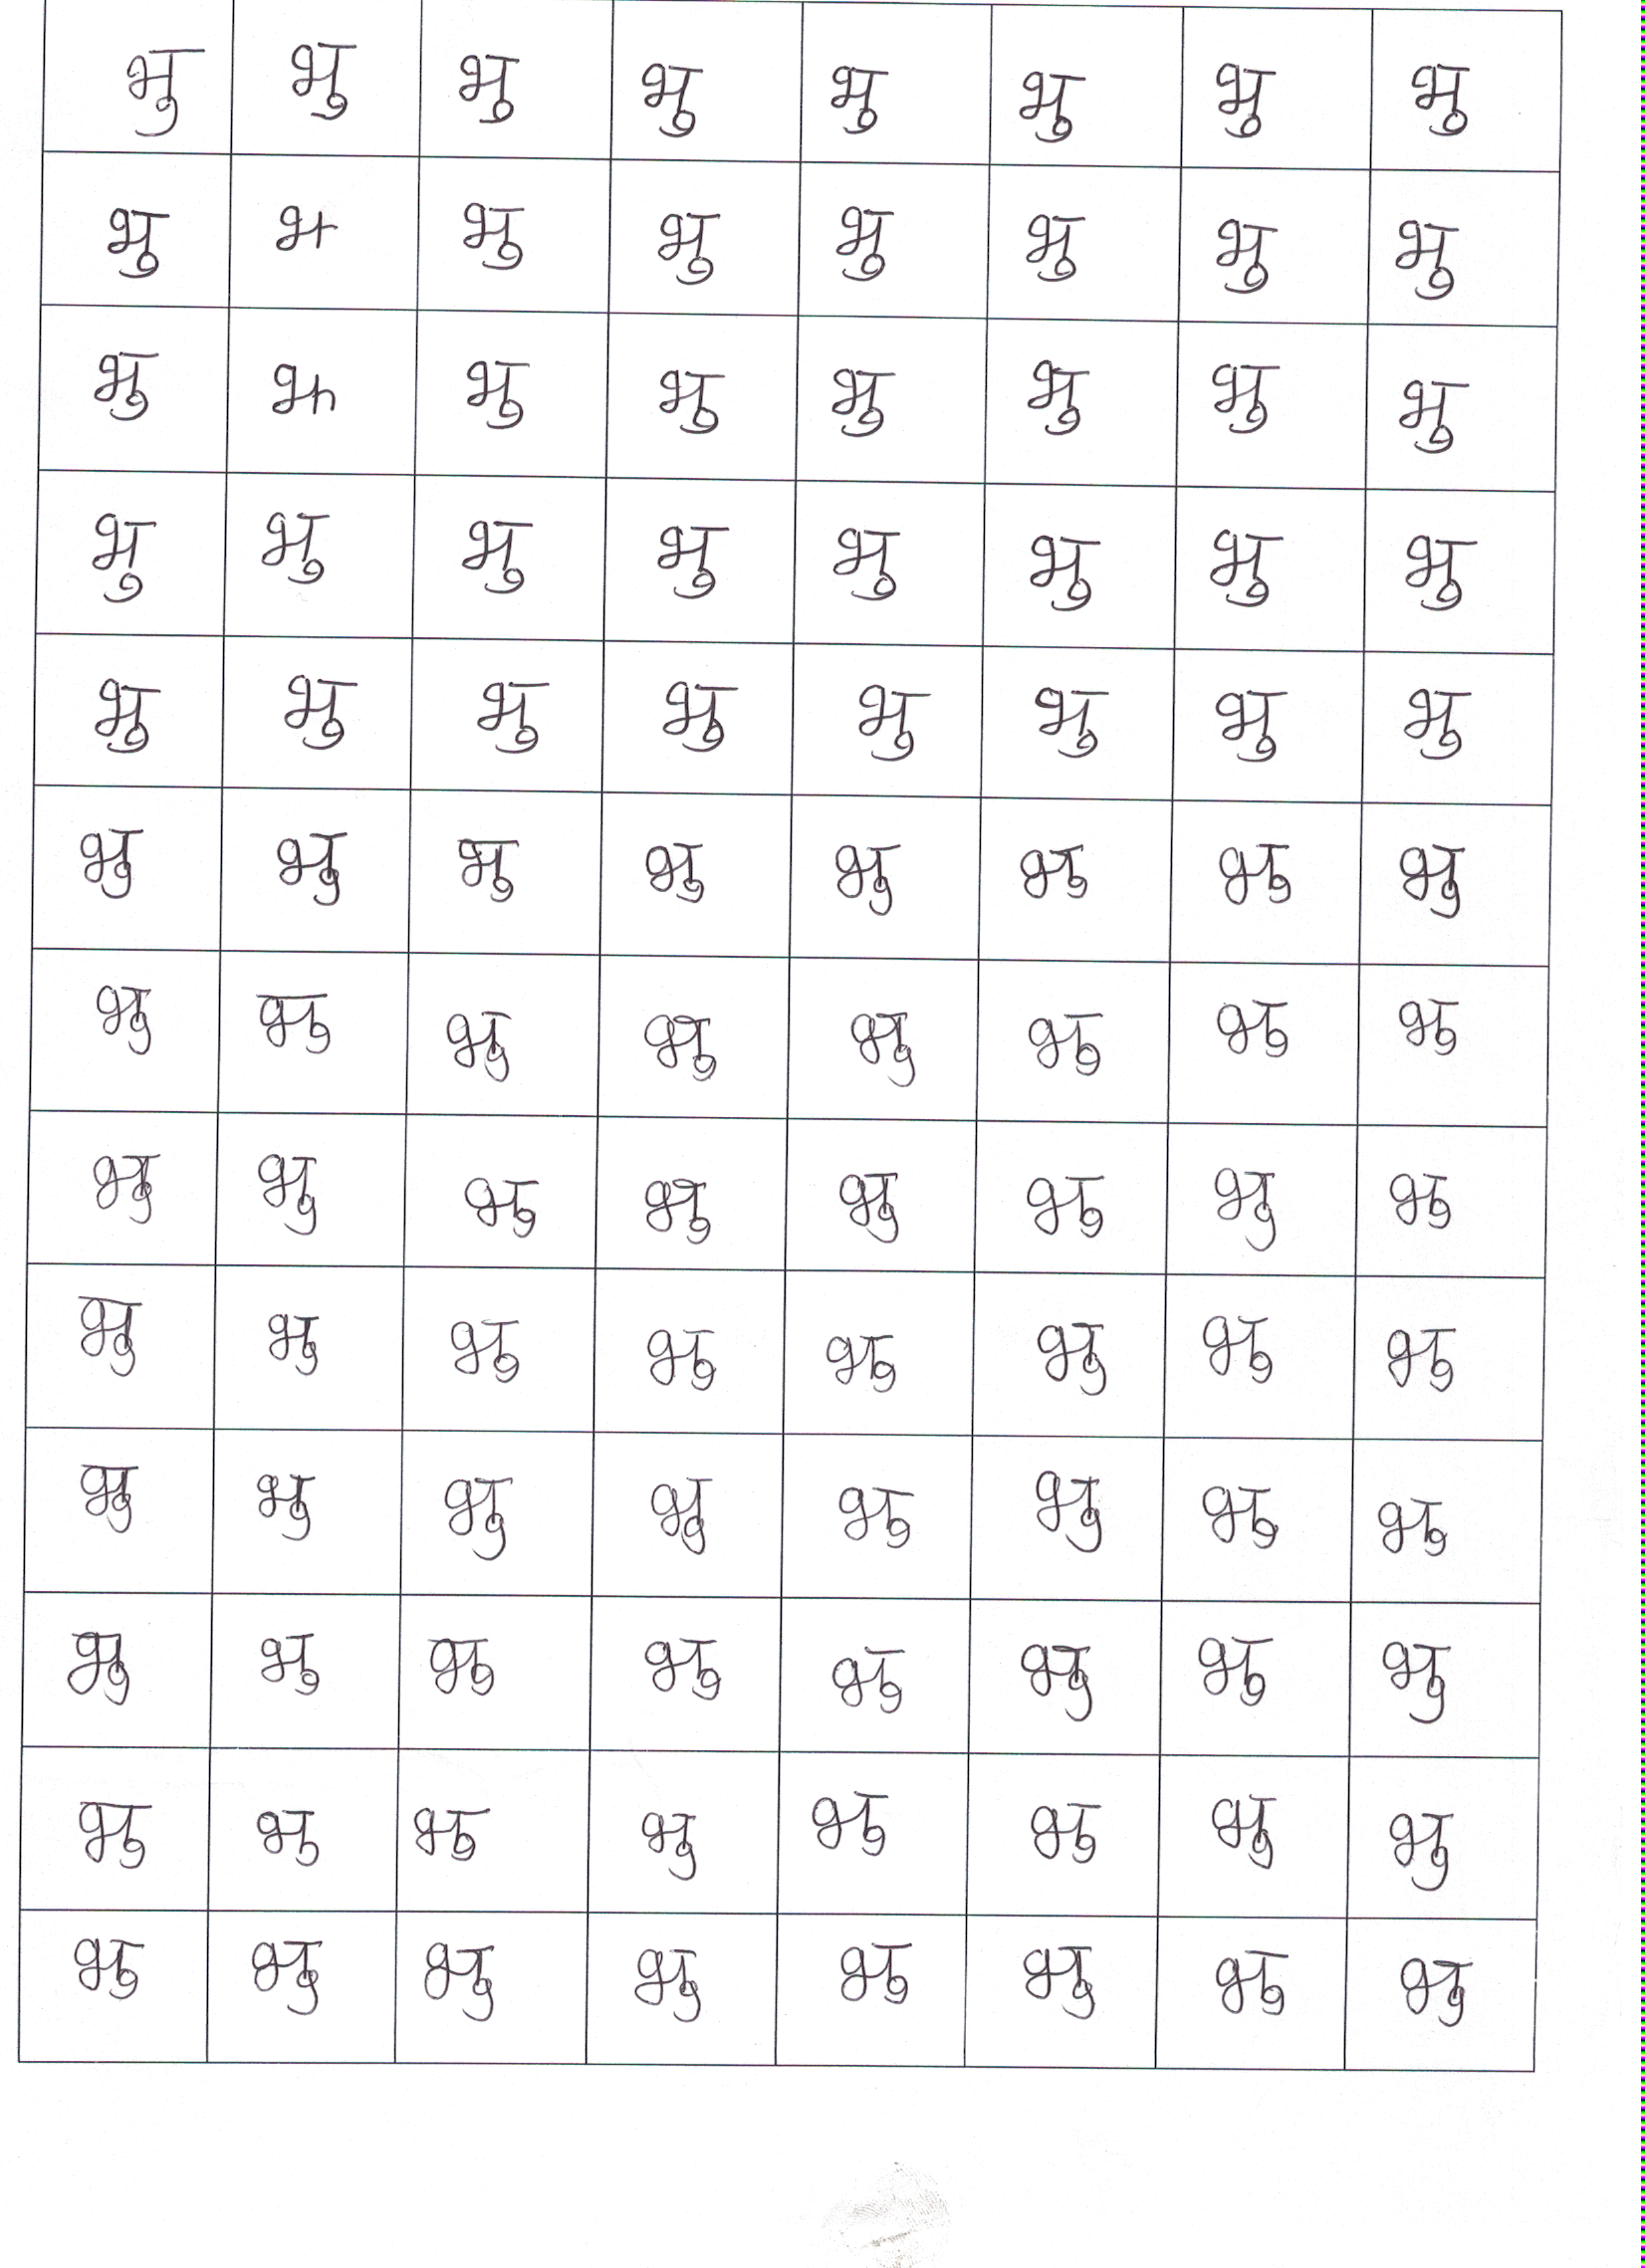 भु भु भु भु भु भु भु भु
भु भु भु भु भु भु भु
भु भु भु भु भु भु भु
भु भु भु भु भु भु भु भु
भु भु भु भु भु भु भु भु
भु भु भु भु भु भु भु भु
भु भु भु भु भु भु भु भु
भु भु भु भु भु भु भु भु
भु भु भु भु भु भु भु भु
भु भु भु भु भु भु भु भु
भु भु भु भु भु भु भु भु
भु भु भु भु भु भु भु भु
भु भु भु भु भु भु भु भु